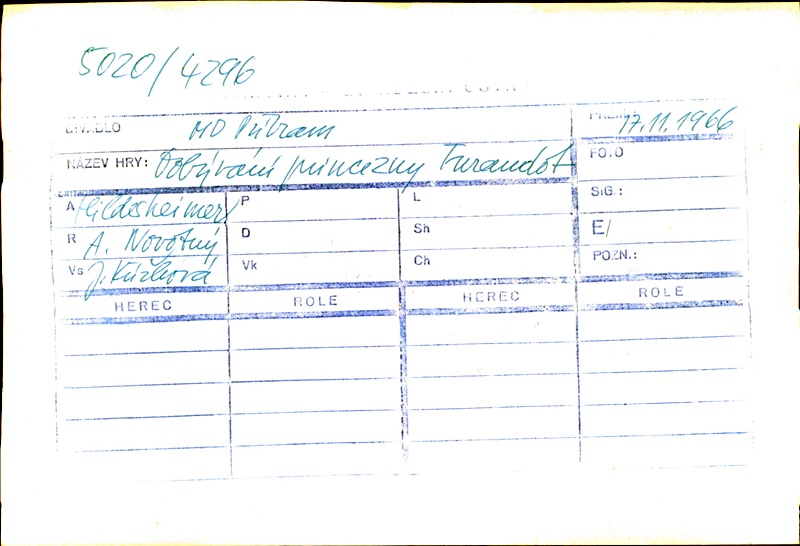 5020/4296
DIVADLO MD Příbram PREM. 17.11.1966
NÁZEV HRY: Dobývání princezny Turandot FO.O
A Hildesheimer P L SIG.:
R A. Novotný D Sh E/
Vs J. Kůžková Vk Ch POZN.:
HEREC ROLE HEREC ROLE